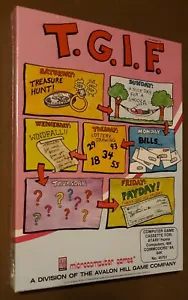 T.G.I.F.
SATURDAY:
TREASURE
HUNT!
SUNDAY:
A NICE DAY
FOR A
SNOOZE
WEDNESDAY:
WINDFALL!
TUESDAY:
LOTTERY
DRAW
29
43
18
34
53
MONDAY
BILLS...
THURSDAY:
? ? ? ? ?
FRIDAY:
PAYDAY!
COMPUTER GAME
CASSETTE FOR
ATARI Home
Computers, 40K
COMMODORE 64
microcomputer games
A DIVISION OF THE AVALON HILL GAME COMPANY